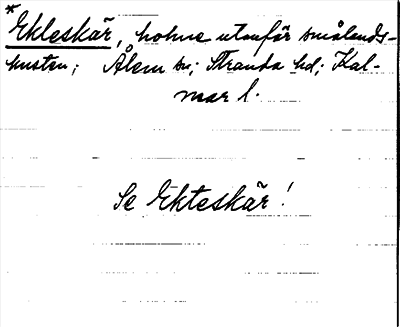 * Ekleskär, holme utanför smålands-
kusten; Ålem sn; Stranda hd; Kal-
mar l.
Se Ekteskär!